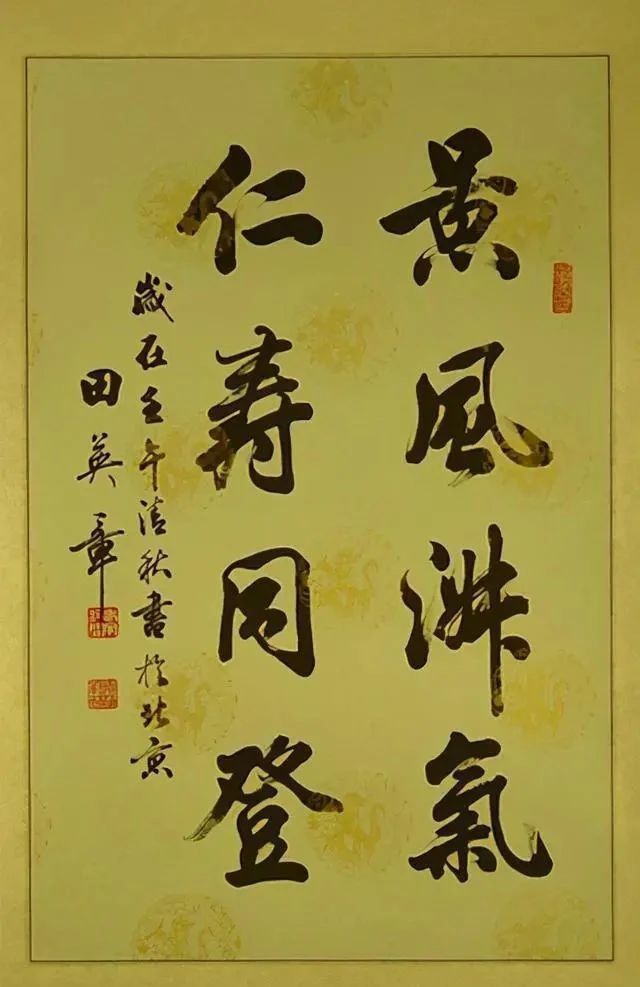 景風淑氣
仁寿同登
歲在壬午清秋書於北京
田英章